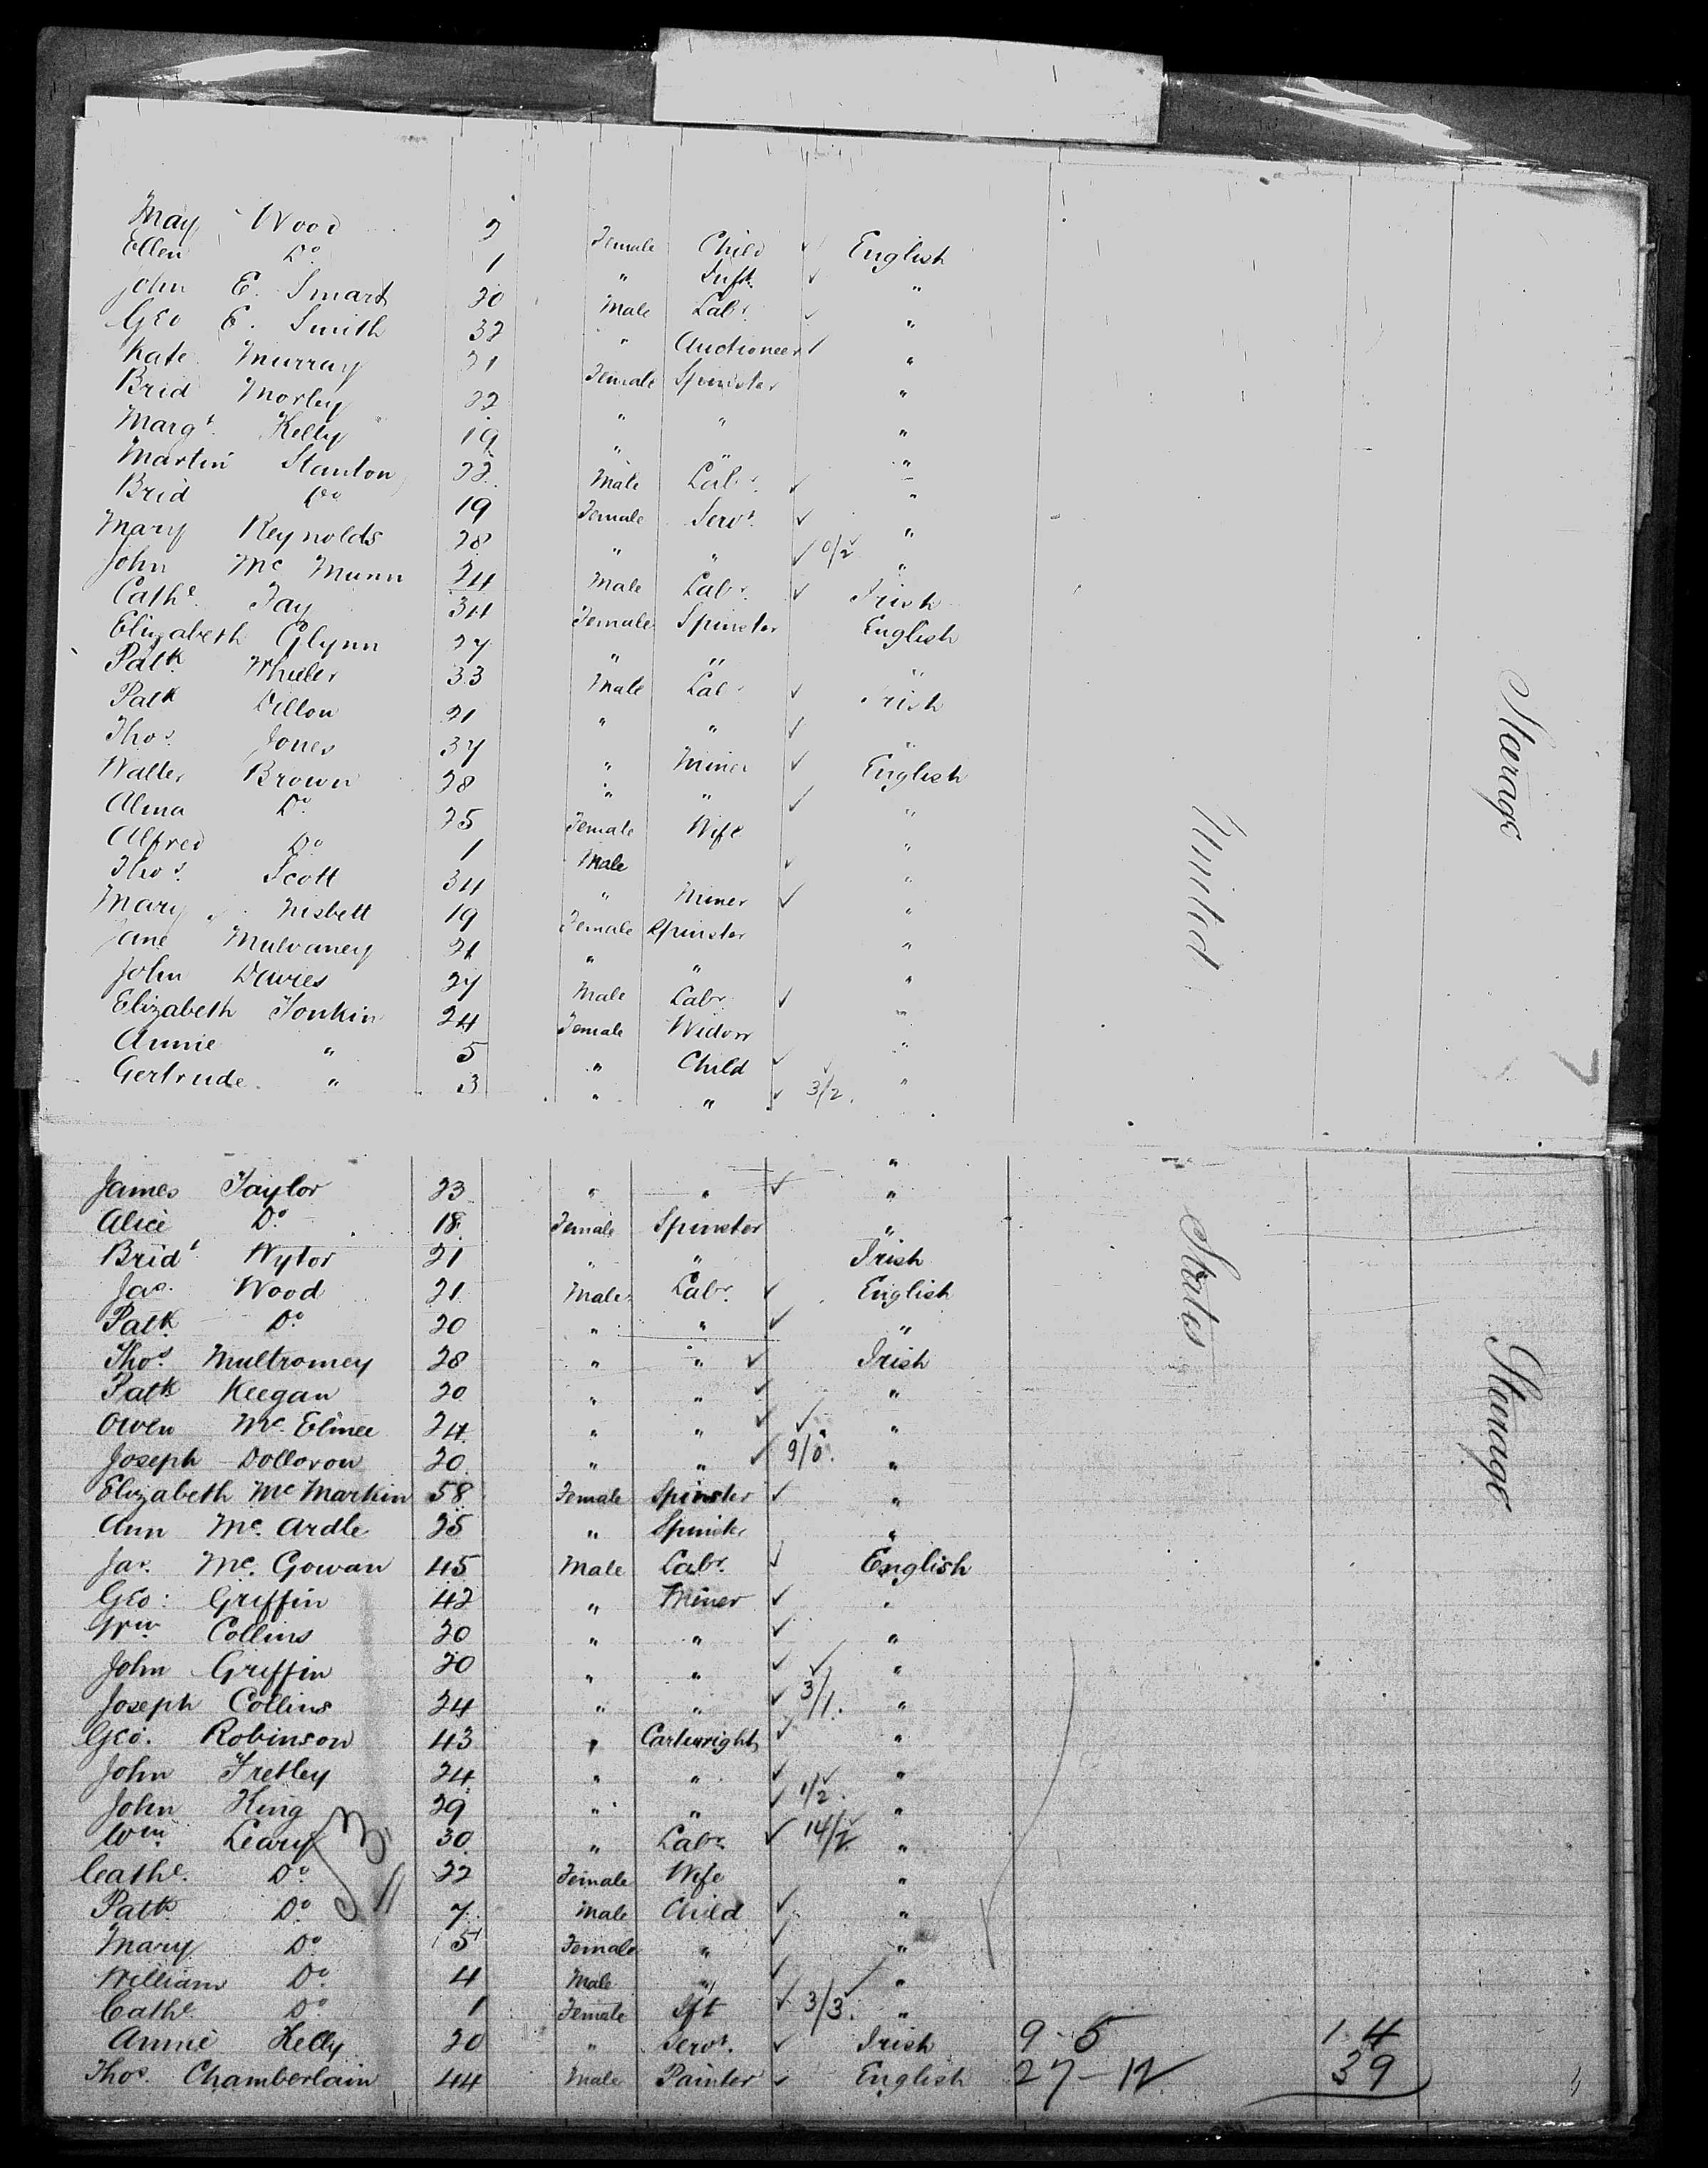 May Wood 2 Female Child ✓ English
Ellen Do 1 " Inft. ✓ "
John E. Smart 30 Male Labr. ✓ "
Geo E. Smith 32 " Auctioneer ✓ "
Kate Murray 21 Female Spinster "
Brid Morley 22 " " "
Margt. Kelly 19 " " "
Martin Stanton 22 Male Labr. ✓ "
Brid Do 19 Female Servt. ✓ "
Mary Reynolds 28 " " ✓ 0/2 "
John Mc Munn 24 Male Labr. ✓ Irish
Cathe. Fay 34 Female Spinster English
Elizabeth Glynn 27 " " "
Patk. Wheeler 33 Male Labr ✓ Irish
Patk Dillon 21 " " ✓ "
Thos. Jones 37 " Miner ✓ English
Walter Brown 28 " " ✓ "
Alma Do. 25 Female Wife "
Alfred Do 1 Male ✓ "
Thos. Scott 34 " Miner ✓ "
Mary Nisbett 19 Female Spinster "
Jane Mulvaney 21 " " "
John Davies 27 Male Labr. ✓ "
Elizabeth Tonkin 24 Female Widow "
Annie " 5 " Child ✓ "
Gertrude " 3 " " ✓ 3/2. "
Steerage
United
James Taylor 23 " " ✓ "
Alice Do 18 Female Spinster "
Bridt Wytor 21 " " Irish
Jas. Wood 21 Male Labr. ✓ English
Patk. Do 20 " " ✓ "
Thos. Multromey 28 " " ✓ Irish
Patk Keegan 20 " " ✓ "
Owen Mc. Elmee 24 " " ✓ "
Joseph Dolloron 20 " " ✓ 9/0. "
Elizabeth Mc Markin 58 Female Spinster ✓ "
Ann Mc. Ardle 25 " Spinster "
Jas. Mc. Gowan 45 Male Labr. ✓ English
Geo: Griffin 42 " Miner ✓ "
Wm Collins 20 " " ✓ "
John Griffin 20 " " ✓ "
Joseph Collins 24 " " ✓ 3/1. "
Geo. Robinson 43 " Cartwright ✓ "
John Fretley 24 " " ✓ "
John King 29 " " ✓ 1/2. "
Wm Leary 30 " Labr. ✓ 14/2 "
Cathe. Do 22 Female Wife "
Patk. Do 7 Male Child ✓ "
Mary Do 5 Female " ✓ "
William Do 4 Male " ✓ "
Cathe. Do 1 Female Ift ✓ 3/3. "
Annie Kelly 20 " Servt. ✓ Irish 9-5 14
Thos. Chamberlain 44 Male Painter ✓ English 27-12 39
States
Steerage